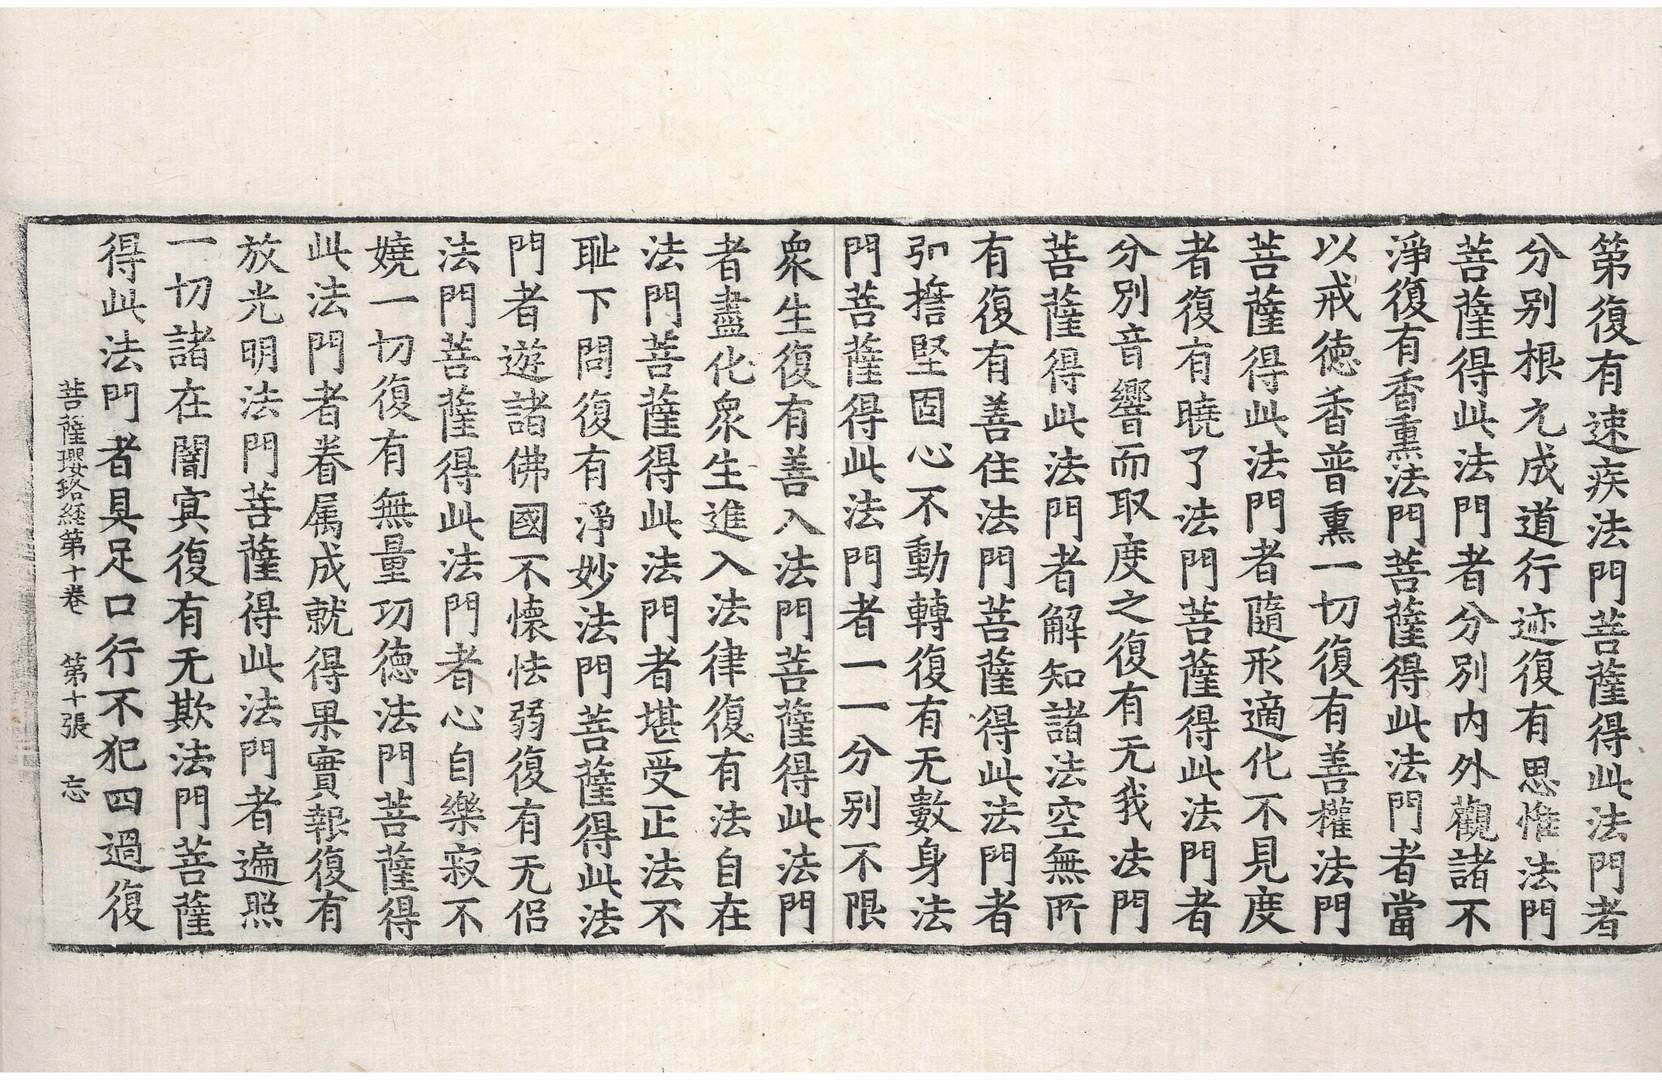 第復有速疾法門菩薩得此法門者
分别根元成道行迹復有思惟法門
菩薩得此法門者分別内外觀諸不
淨復有香熏法門菩薩得此法門者當
以戒德香普熏一切復有善權法門
菩薩得此法門者隨形適化不見度
者復有曉了法門菩薩得此法門者
分別音響而取度之復有无我法門
菩薩得此法門者解知諸法空無所
有復有善住法門菩薩得此法門者
弘擔堅固心不動轉復有无數身法
門菩薩得此法門者一一分别不限
衆生復有善入法門菩薩得此法門
者盡化衆生進入法律復有法自在
法門菩薩得此法門者堪受正法不
耻下問復有淨妙法門菩薩得此法
門者遊諸佛國不懷怯弱復有无侶
法門菩薩得此法門者心自樂寂不
嬈一切復有無量功德法門菩薩得
此法門者眷属成就得果實報復有
放光明法門菩薩得此法門者遍照
一切諸在闇㝠復有无欺法門菩薩
得此法門者具足口行不犯四過復
菩薩瓔珞経第十卷　第十張　忘